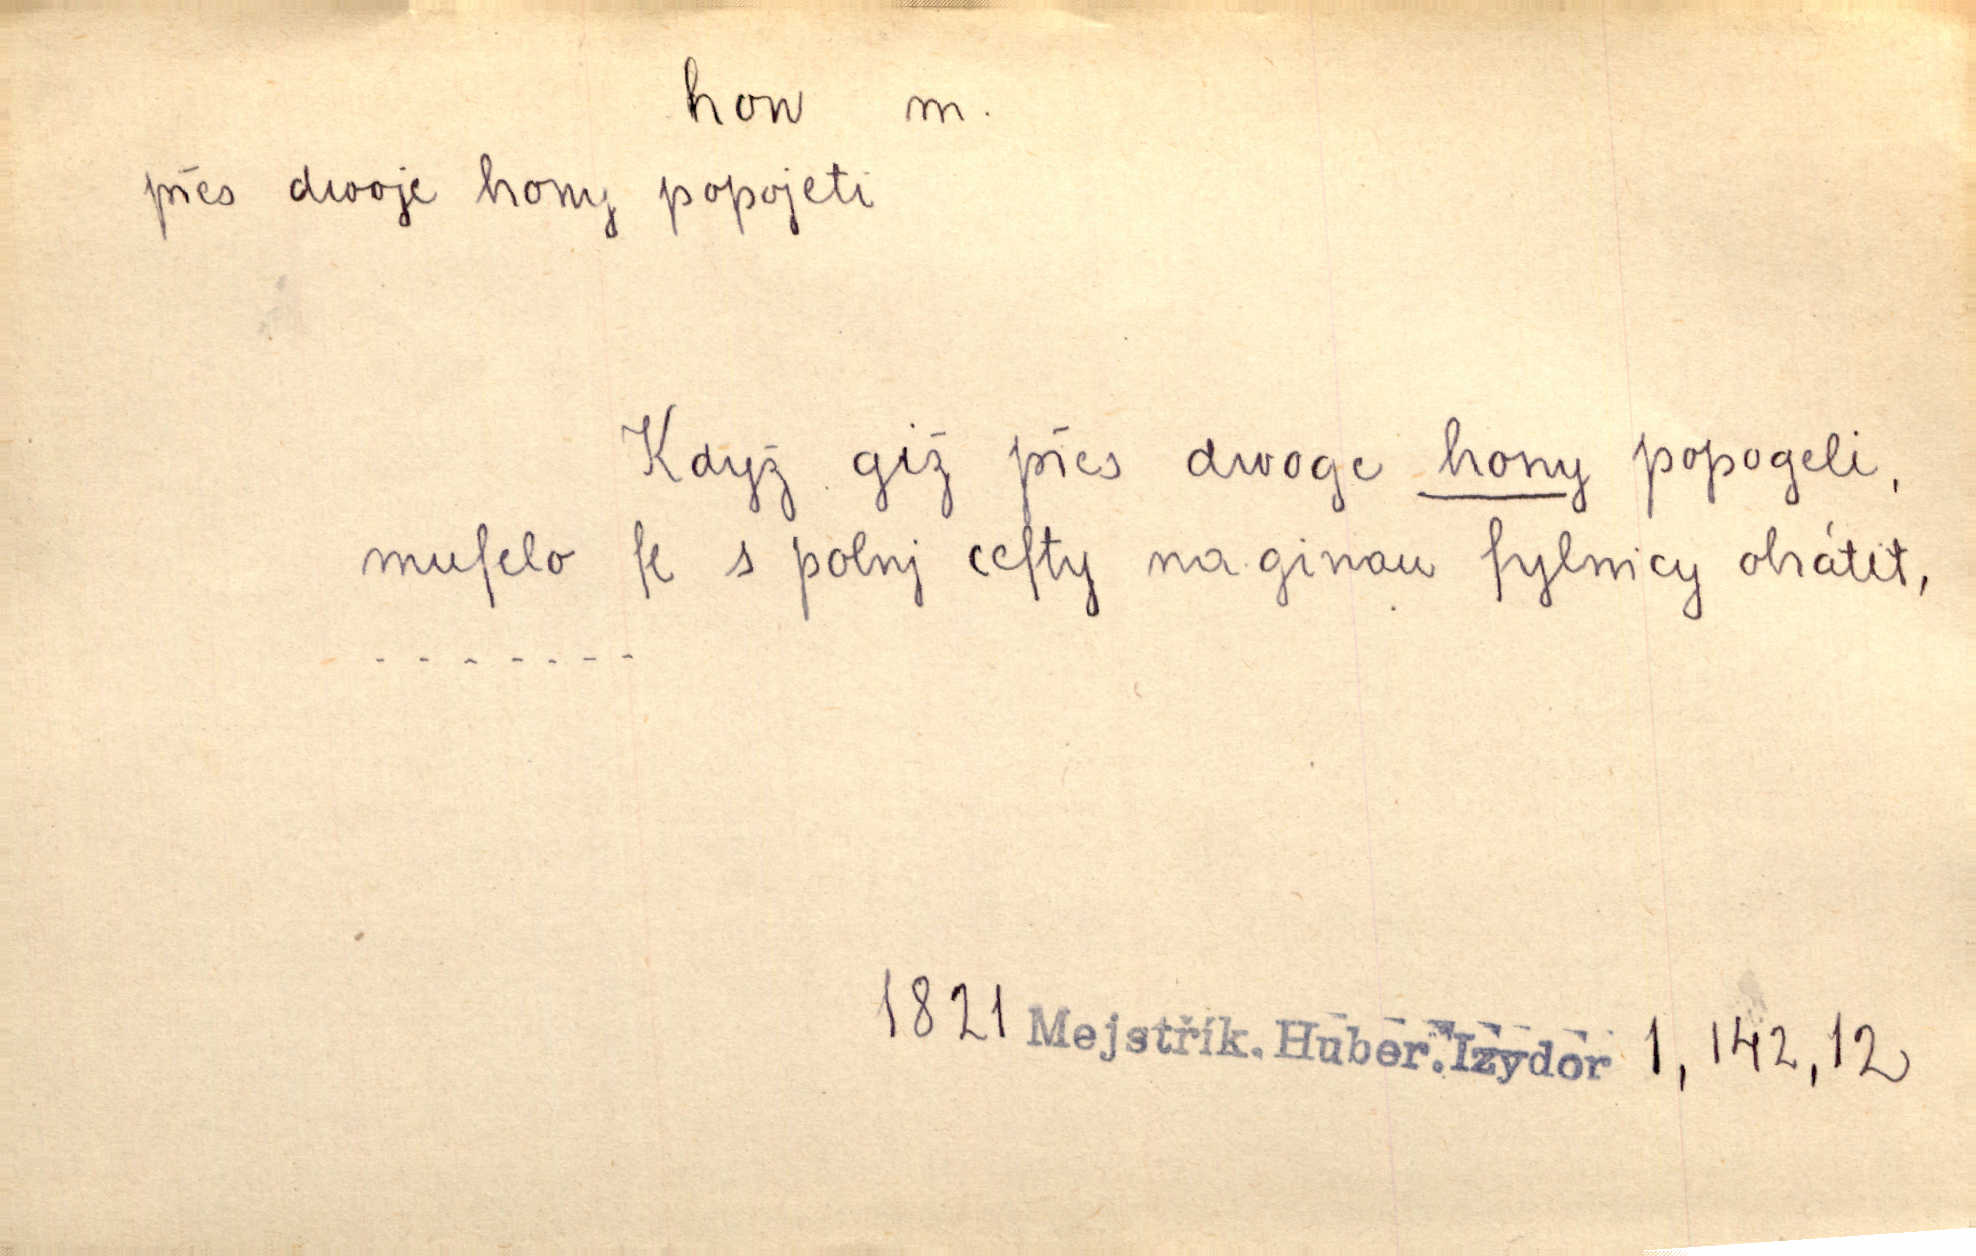 hon m.
přes dvoje hony popojeti
Když giž přes dwoge hony popogeli,
muſelo ſe s polnj ceſty na ginau ſylnicy obrátit,
- - - - - - -
1821 Mejstřík. Huber. Izydor 1, 142, 12